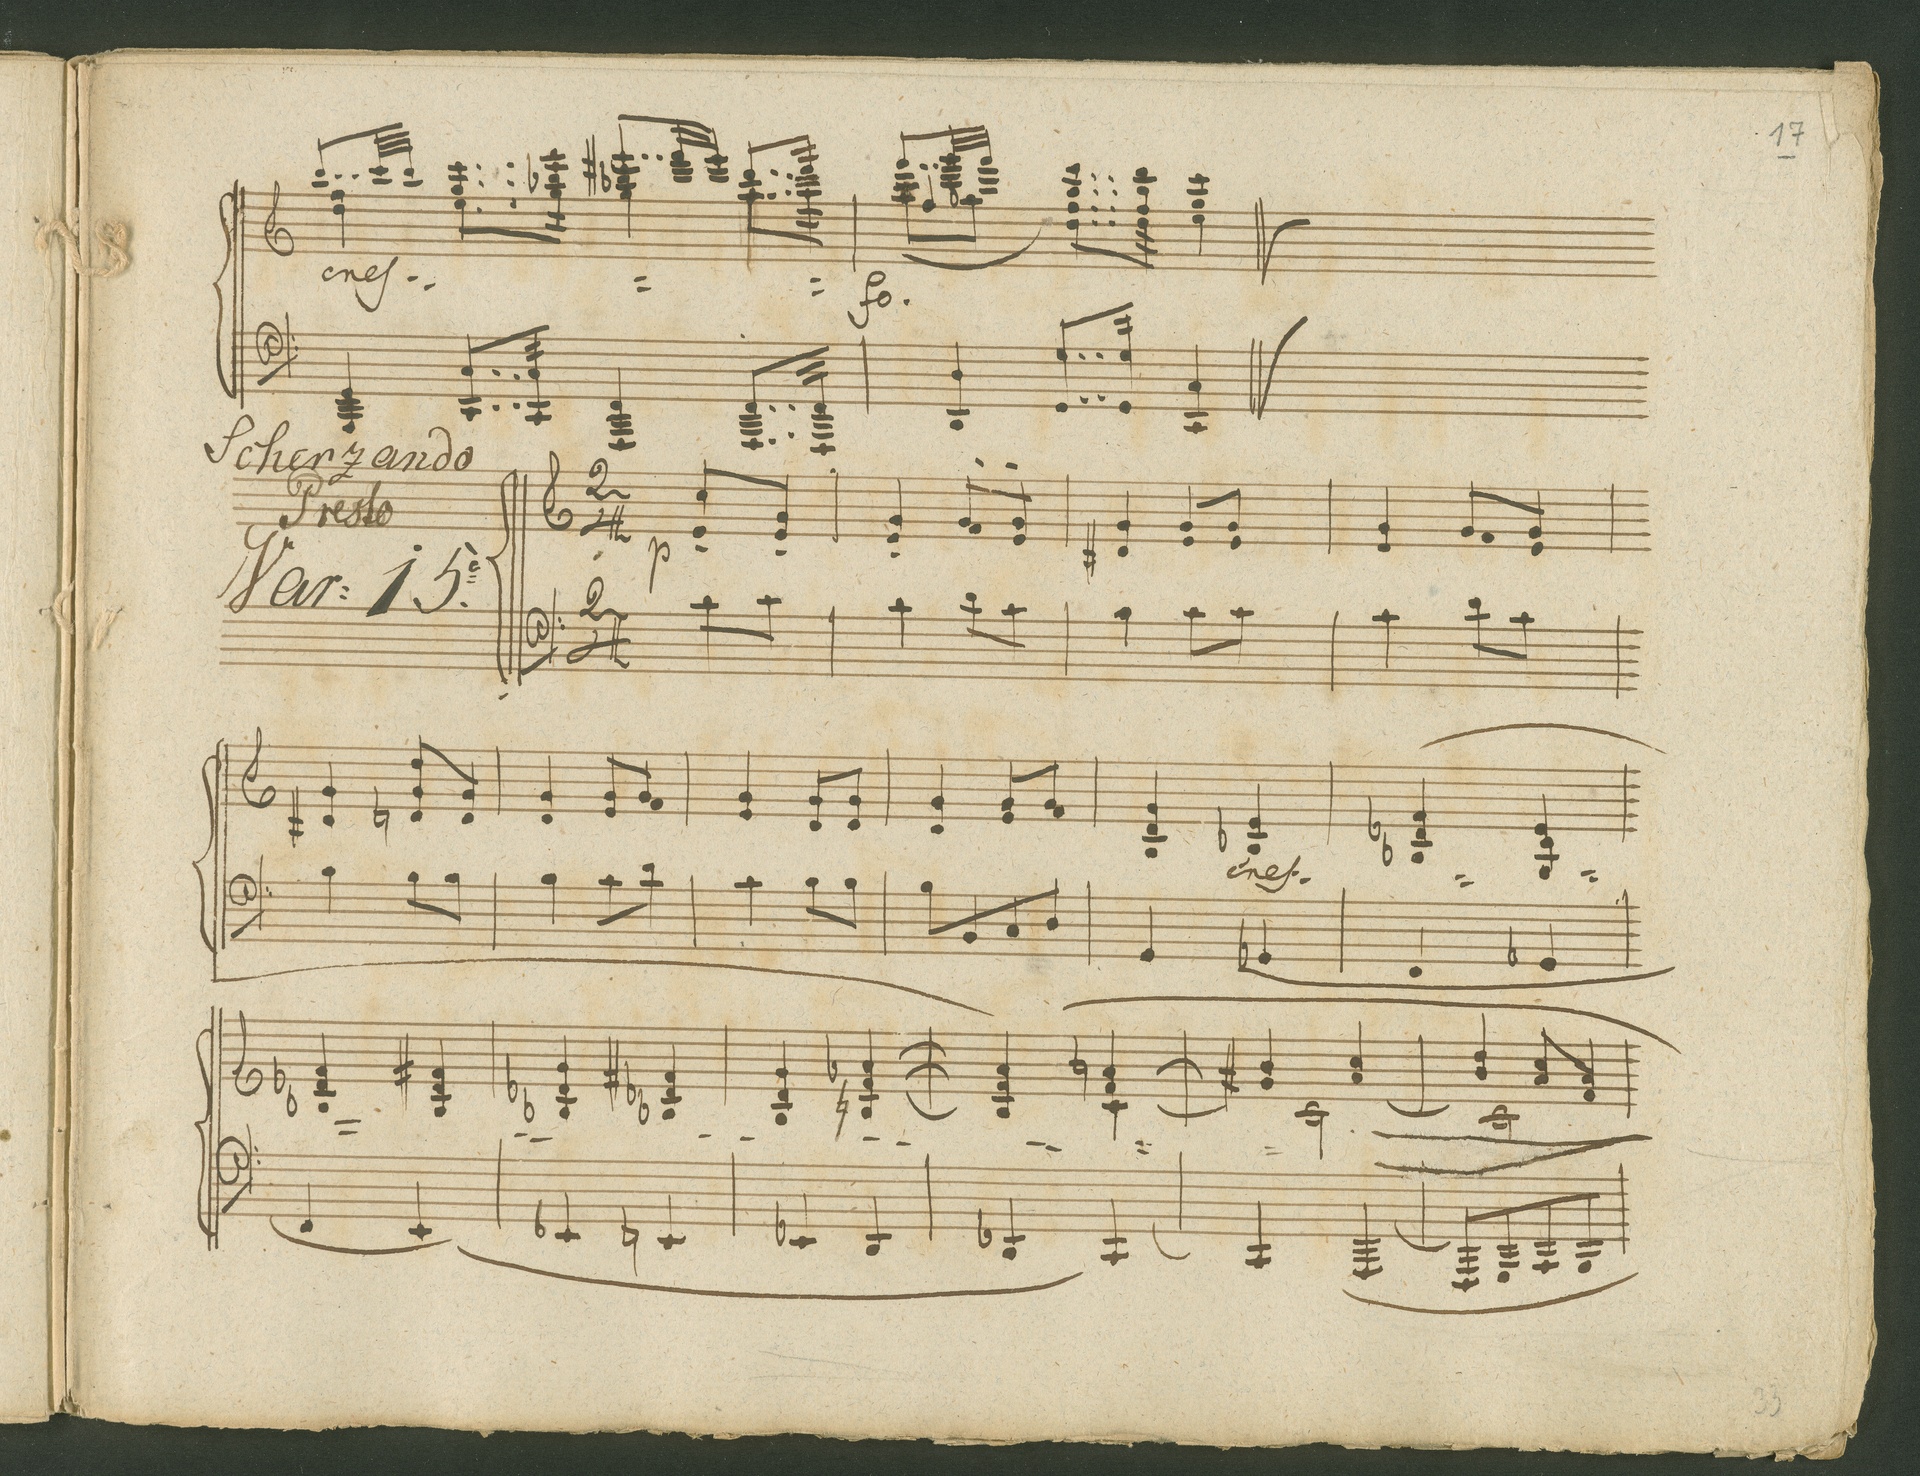 17
cres.
fo.
Scherzando
Presto
Var: 15.
2
4
p
2
4
cres.
33